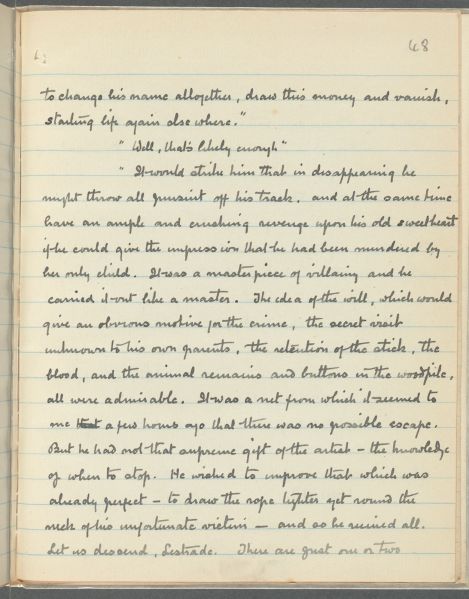 48
to change his name altogether, draw this money and vanish,
starting life again elsewhere."
" Well, that's likely enough"
" It would strike him that in disappearing he
might throw all pursuit off his track, and at the same time
have an ample and crushing revenge upon his old sweetheart
if he could give the impression that he had been murdered by
her only child. It was a masterpiece of villainy and he
carried it out like a master. The idea of the will, which would
give an obvious motive for the crime, the secret visit
unknown to his own parents, the retention of the stick, the
blood, and the animal remains and buttons in the woodpile,
all were admirable. It was a net from which it seemed to
me a few hours ago that there was no possible escape.
But he had not that supreme gift of the artist – the knowledge
of when to stop. He wished to improve that which was
already perfect – to draw the rope tighter yet round the
neck of his unfortunate victim — and so he ruined all.
Let us descend, Lestrade. There are just one or two